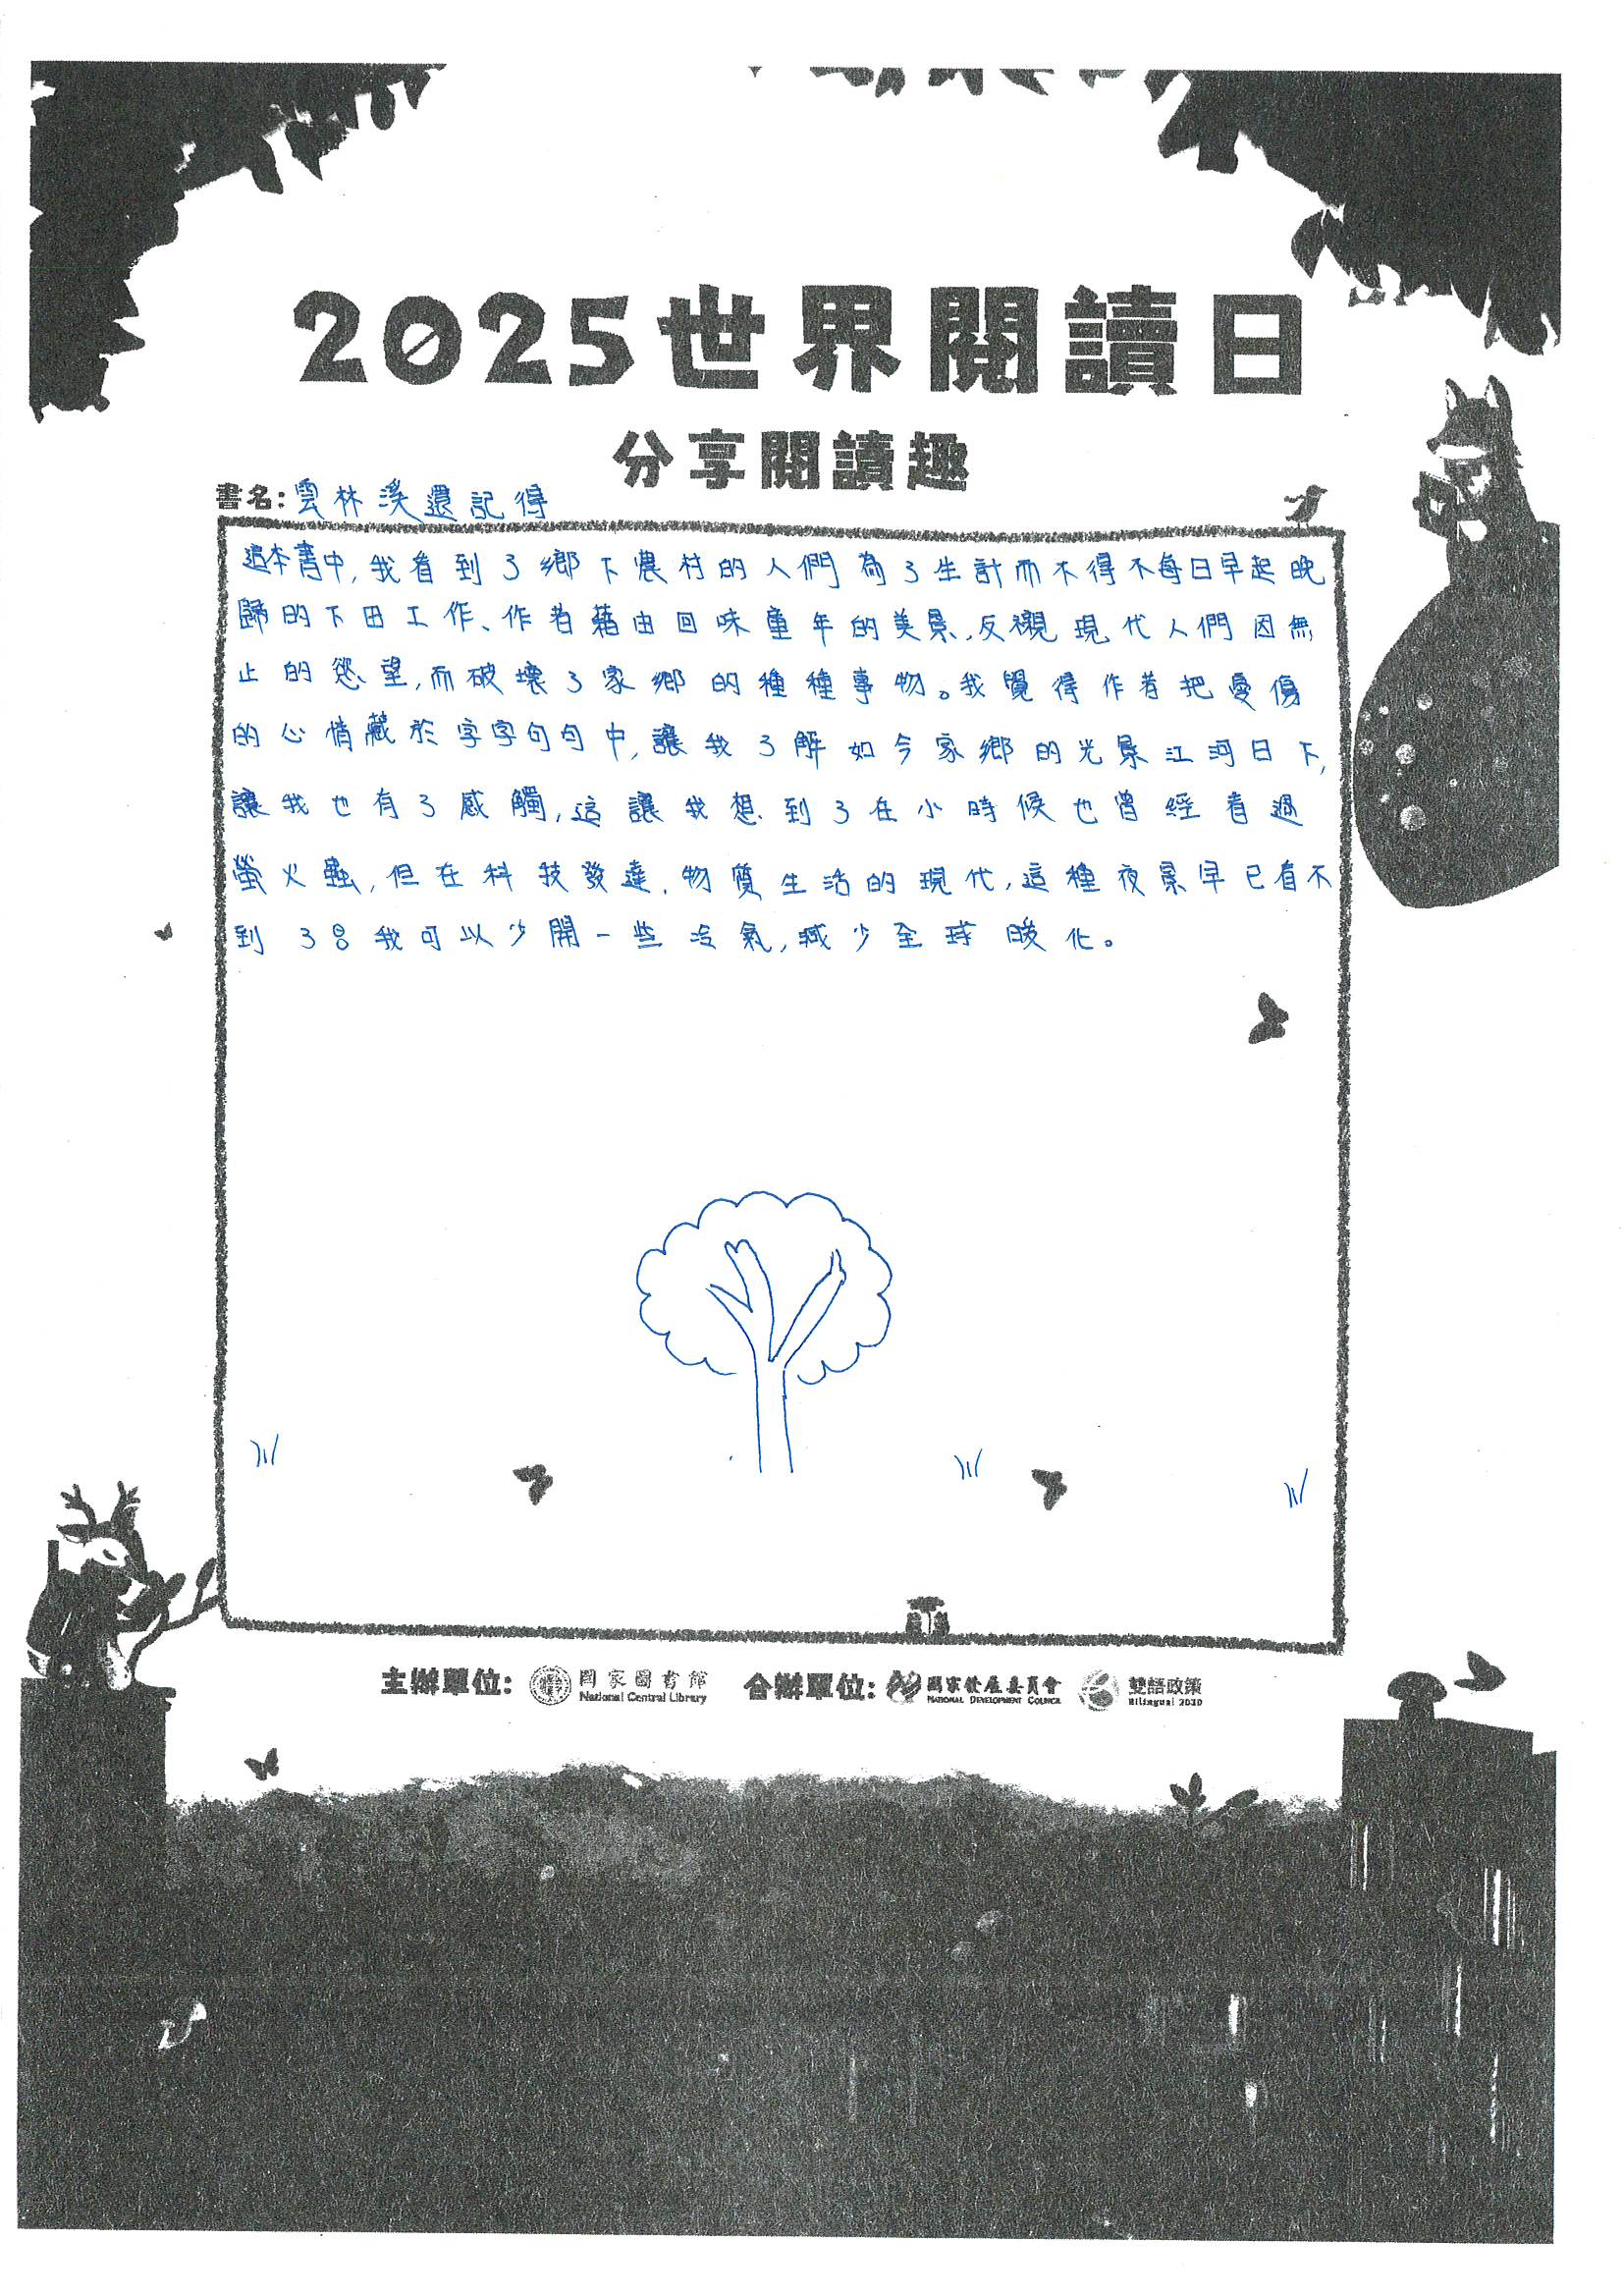 2025世界閱讀日
分享閱讀趣
書名:雲林溪還記得
這本書中,我看到了鄉下農村的人們為了生計而不得不每日早起晚
歸的下田工作、作者藉由回味童年的美景,反襯現代人們因無
止的慾望,而破壞了家鄉的種種事物。我覺得作者把憂傷
的心情藏於字字句句中,讓我了解如今家鄉的光景江河日下,
讓我也有了感觸,這讓我想到了在小時候也曾經看過
螢火蟲,但在科技發達,物質生活的現代,這種夜景早已看不
到了。我可以少開一些冷氣,減少全球暖化。
主辦單位: 國家圖書館 National Central Library 合辦單位: 國家發展委員會 NATIONAL DEVELOPMENT COUNCIL 雙語政策 Bilingual 2030